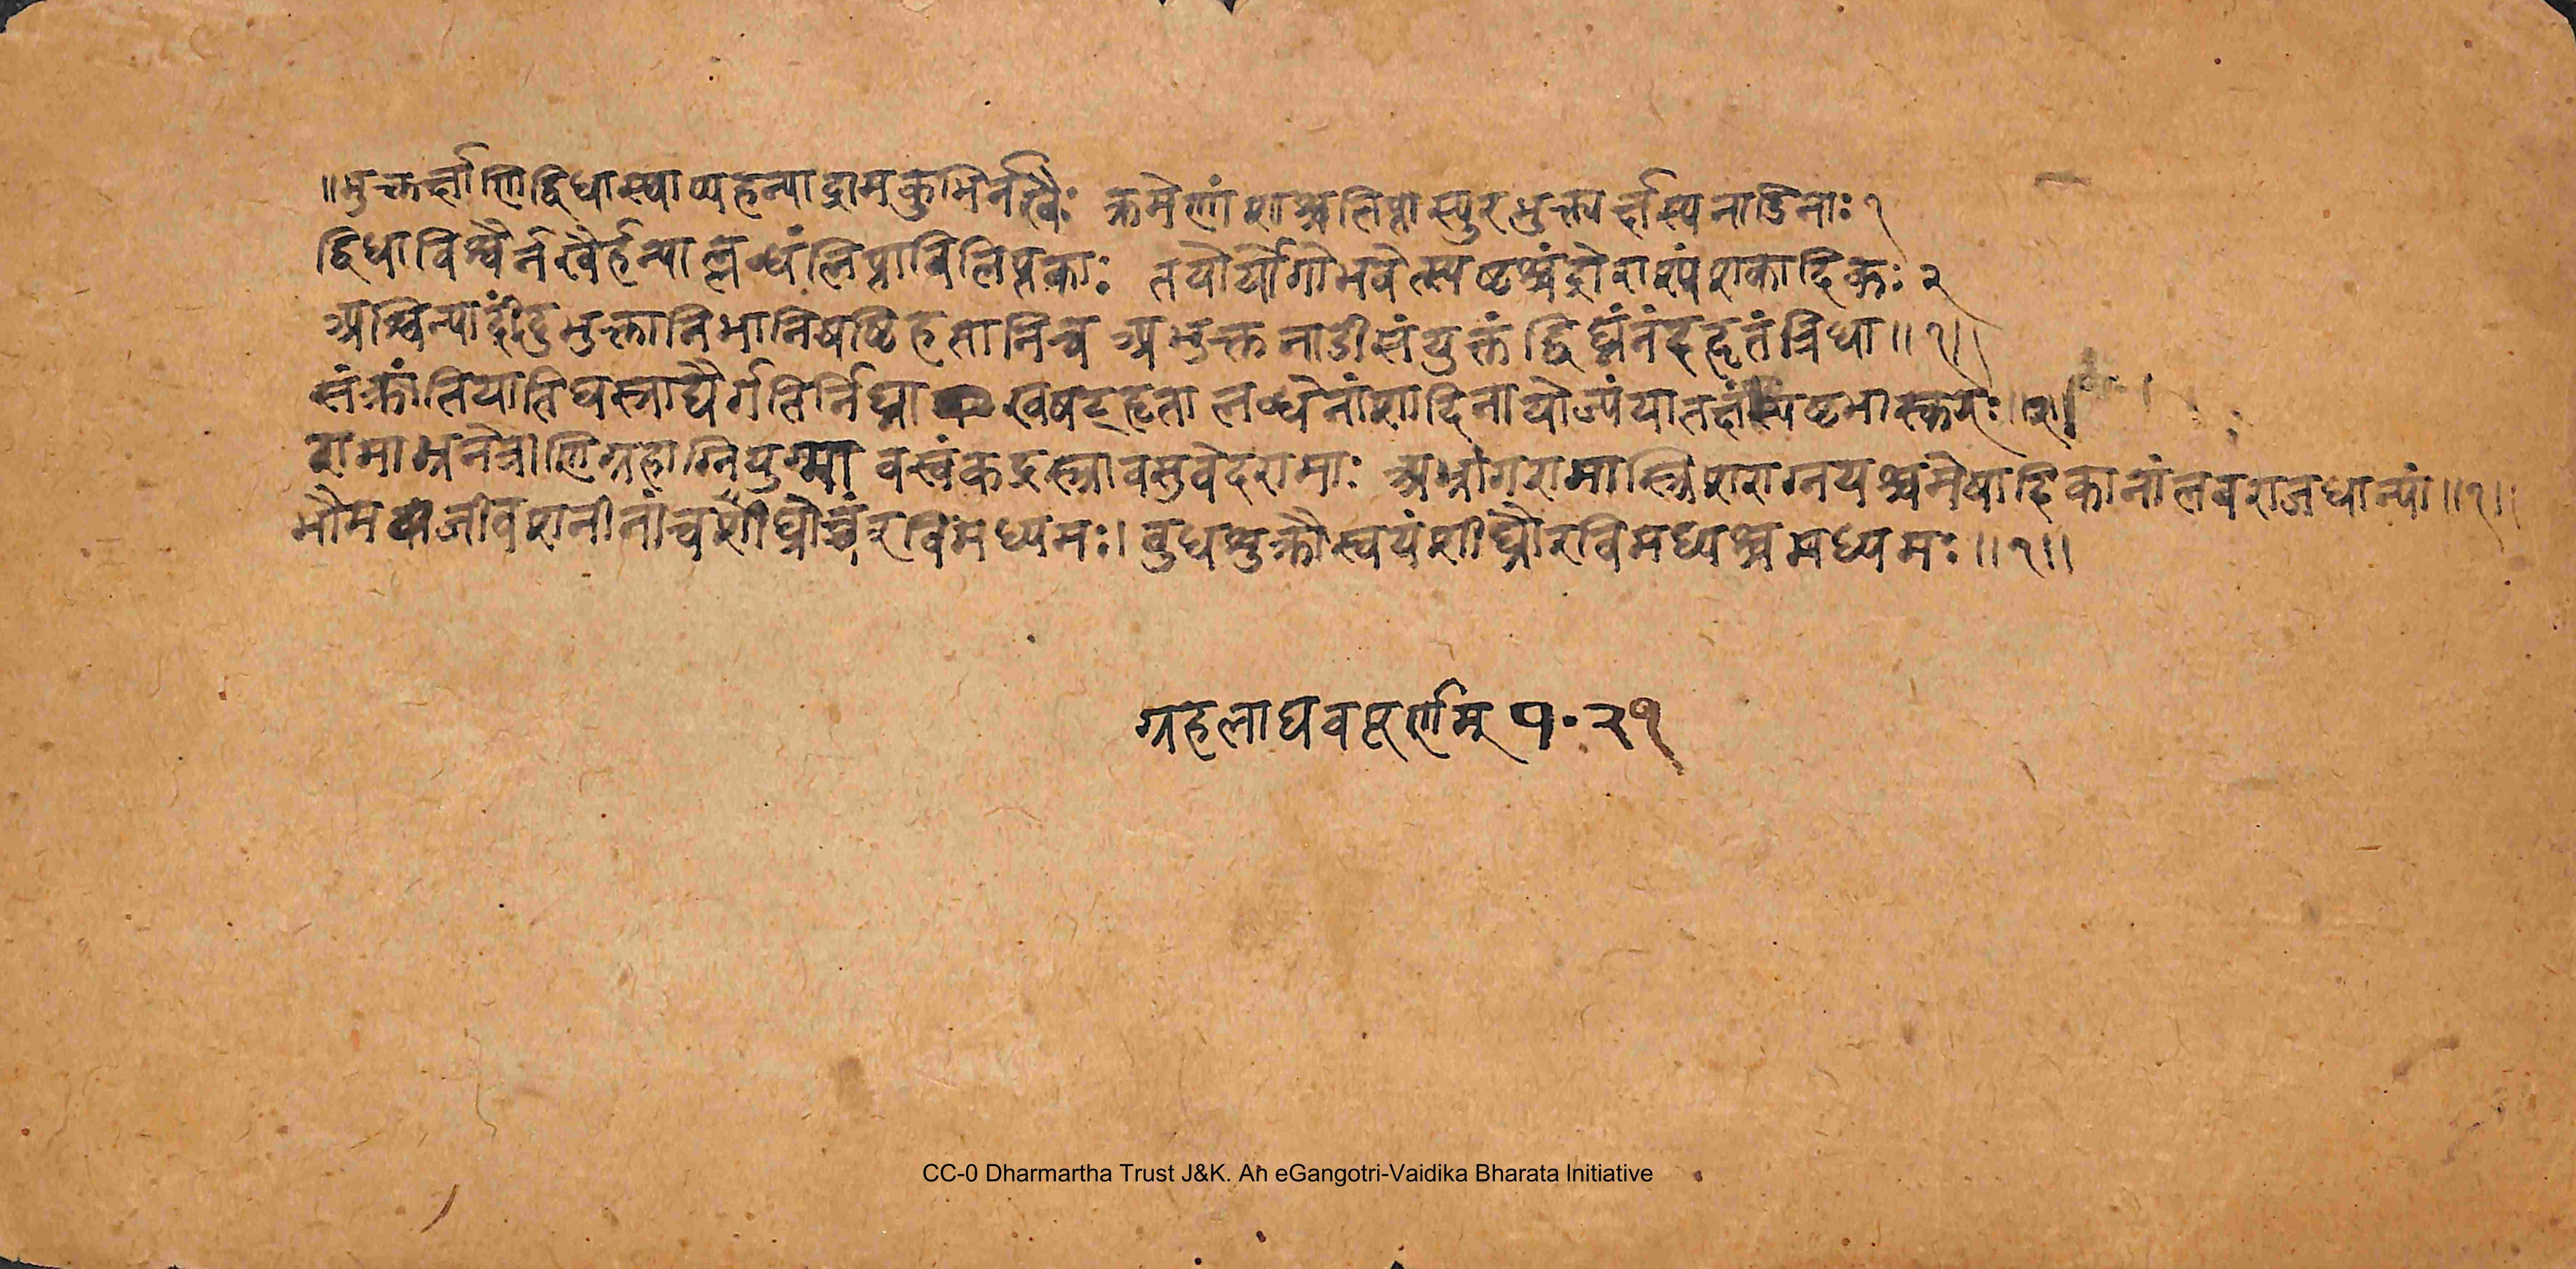 ॥भुक्तर्क्षाणिद्विधास्थाप्यहन्याद्रामकुभिर्नखैः क्रमेणांशाश्चलिप्तास्युरभुक्तर्क्षस्यनाडिनाः १
द्विधाविश्वैर्नखैर्हन्याल्लब्धंलिप्ताविलिप्तकाः तयोर्योगोभवेत्स्पष्टश्चंद्रोराश्यंशकादिकः २
अश्विन्यादींदुभुक्तानिभानिषष्टिहतानिच अभुक्तनाडीसंयुक्तंद्विघ्नंनंदहृतंत्रिधा॥१॥
संक्रांतियातिघस्राद्यैर्गतिर्निघ्ना खषट्हृता लब्धेनांशादिनायोज्यंयातर्क्षंस्पष्टभास्करः॥२॥
रामाभ्रनेत्राणिग्रहाग्नियुग्मा वस्वंकदस्रावसुवेदरामाः अभ्रांगरामास्त्रिशराग्नयश्चमेषादिकानांलवराजधान्यां॥१॥
भौम जीवशनीनांचशीघ्रोच्चंरविमध्यमः। बुधशुक्रौस्वयंशीघ्रौरविमध्यश्चमध्यमः॥१॥
ग्रहलाघवपूर्णम् प॰ २१
CC-0 Dharmartha Trust J&K. An eGangotri-Vaidika Bharata Initiative